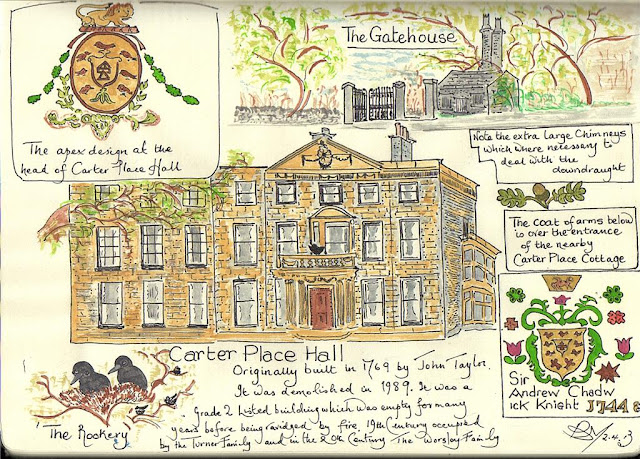 The Gatehouse
The apex design at the
head of Carter Place Hall
Note the extra large Chimneys
which where necessary to
deal with the
downdraught
The coat of arms below
is over the entrance
of the nearby
Carter Place Cottage
Carter Place Hall
Originally built in 1769 by John Taylor.
It was demolished in 1989. It was a
grade 2 listed building which was empty for many
years before being ravidged by fire. 19th century occupied
by the Turner Family and in the 20th Century The Worsley Family
'The Rookery'
Sir
Andrew Chadw
ick Knight 1744